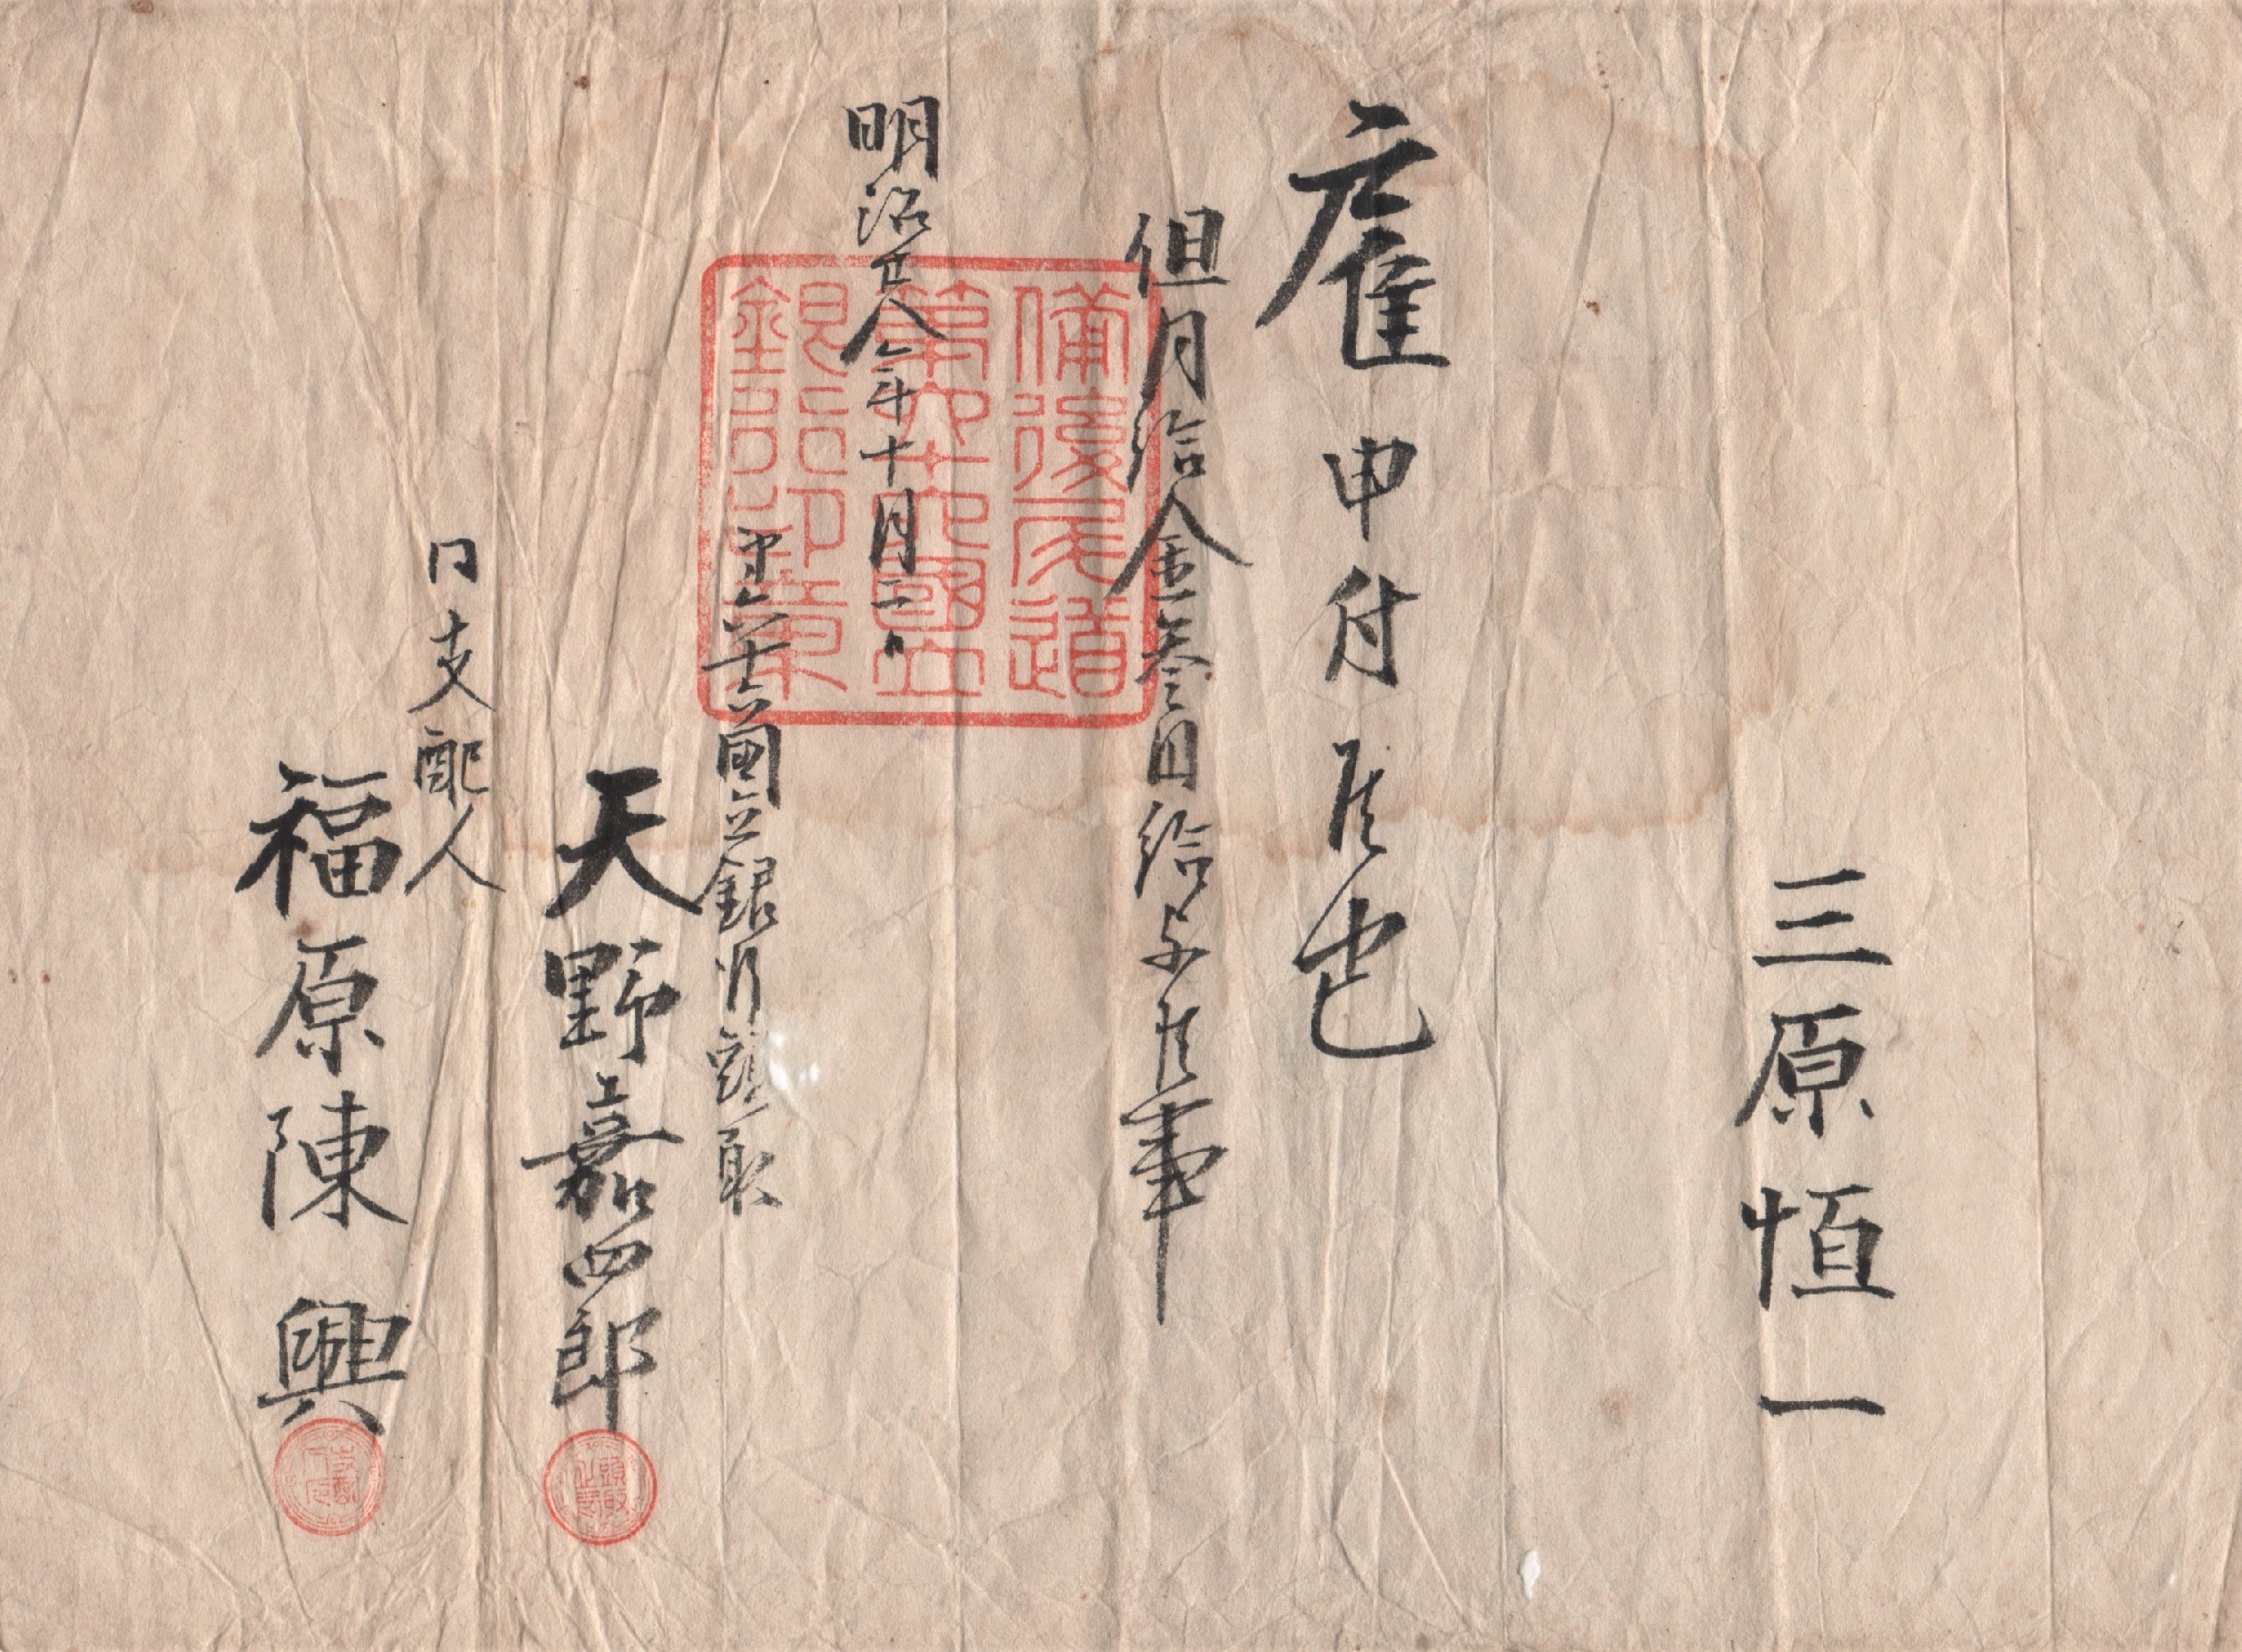 三原恒一
雇申付候也
但月給金叁円給与候事
明治廿八年十月一日
第六十六国立銀行頭取
天野嘉四郎
同支配人
福原陳興
備後尾道
第六十六國立
銀行印章
頭取